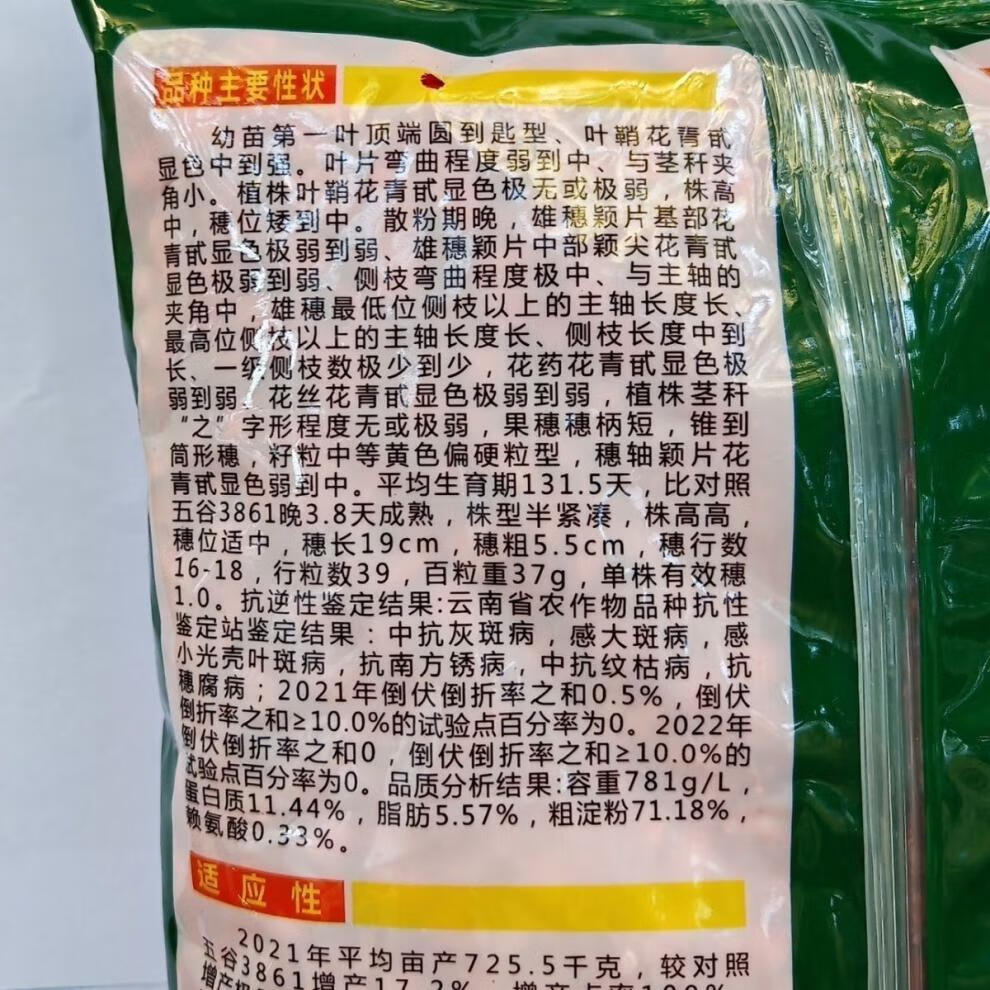 品种主要性状
幼苗第一叶顶端圆到匙型、叶鞘花青甙
显色中到强。叶片弯曲程度弱到中、与茎秆夹
角小。植株叶鞘花青甙显色极无或极弱，株高
中，穗位矮到中。散粉期晚，雄穗颖片基部花
青甙显色极弱到弱、雄穗颖片中部颖尖花青甙
显色极弱到弱、侧枝弯曲程度极中、与主轴的
夹角中，雄穗最低位侧枝以上的主轴长度长、
最高位侧枝以上的主轴长度长、侧枝长度中到
长、一级侧枝数极少到少，花药花青甙显色极
弱到弱，花丝花青甙显色极弱到弱，植株茎秆
“之”字形程度无或极弱，果穗穗柄短，锥到
筒形穗，籽粒中等黄色偏硬粒型，穗轴颖片花
青甙显色弱到中。平均生育期131.5天，比对照
五谷3861晚3.8天成熟，株型半紧凑，株高高，
穗位适中，穗长19cm，穗粗5.5cm，穗行数
16-18，行粒数39，百粒重37g，单株有效穗
1.0。抗逆性鉴定结果:云南省农作物品种抗性
鉴定站鉴定结果：中抗灰斑病，感大斑病，感
小光壳叶斑病，抗南方锈病，中抗纹枯病，抗
穗腐病；2021年倒伏倒折率之和0.5%，倒伏
倒折率之和≥10.0%的试验点百分率为0。2022年
倒伏倒折率之和0，倒伏倒折率之和≥10.0%的
试验点百分率为0。品质分析结果:容重781g/L，
蛋白质11.44%，脂肪5.57%，粗淀粉71.18%，
赖氨酸0.33%。
适应性
2021年平均亩产725.5千克，较对照
五谷3861增产17.2%，增产点率100%
增产极